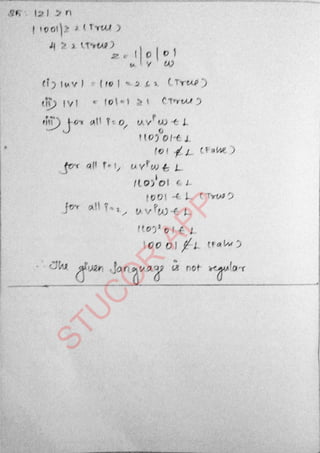 |z| ≥ n
|1001| ≥ 2 (True)
4 ≥ 2 (True)
z = 1|0|01
u v w
(i) |uv| = |10| = 2 ≤ 2 (True)
(ii) |v| = |0| = 1 ≥ 1 (True)
(iii) for all i=0, uvⁱw ∈ L
1(0)⁰01 ∈ L
101 ∉ L (False)
for all i=1, uvⁱw ∈ L
1(0)¹01 ∈ L
1001 ∈ L (True)
for all i=2, uvⁱw ∈ L
1(0)²01 ∈ L
10001 ∉ L (False)
∴ The given language is not regular
STUCOR APP